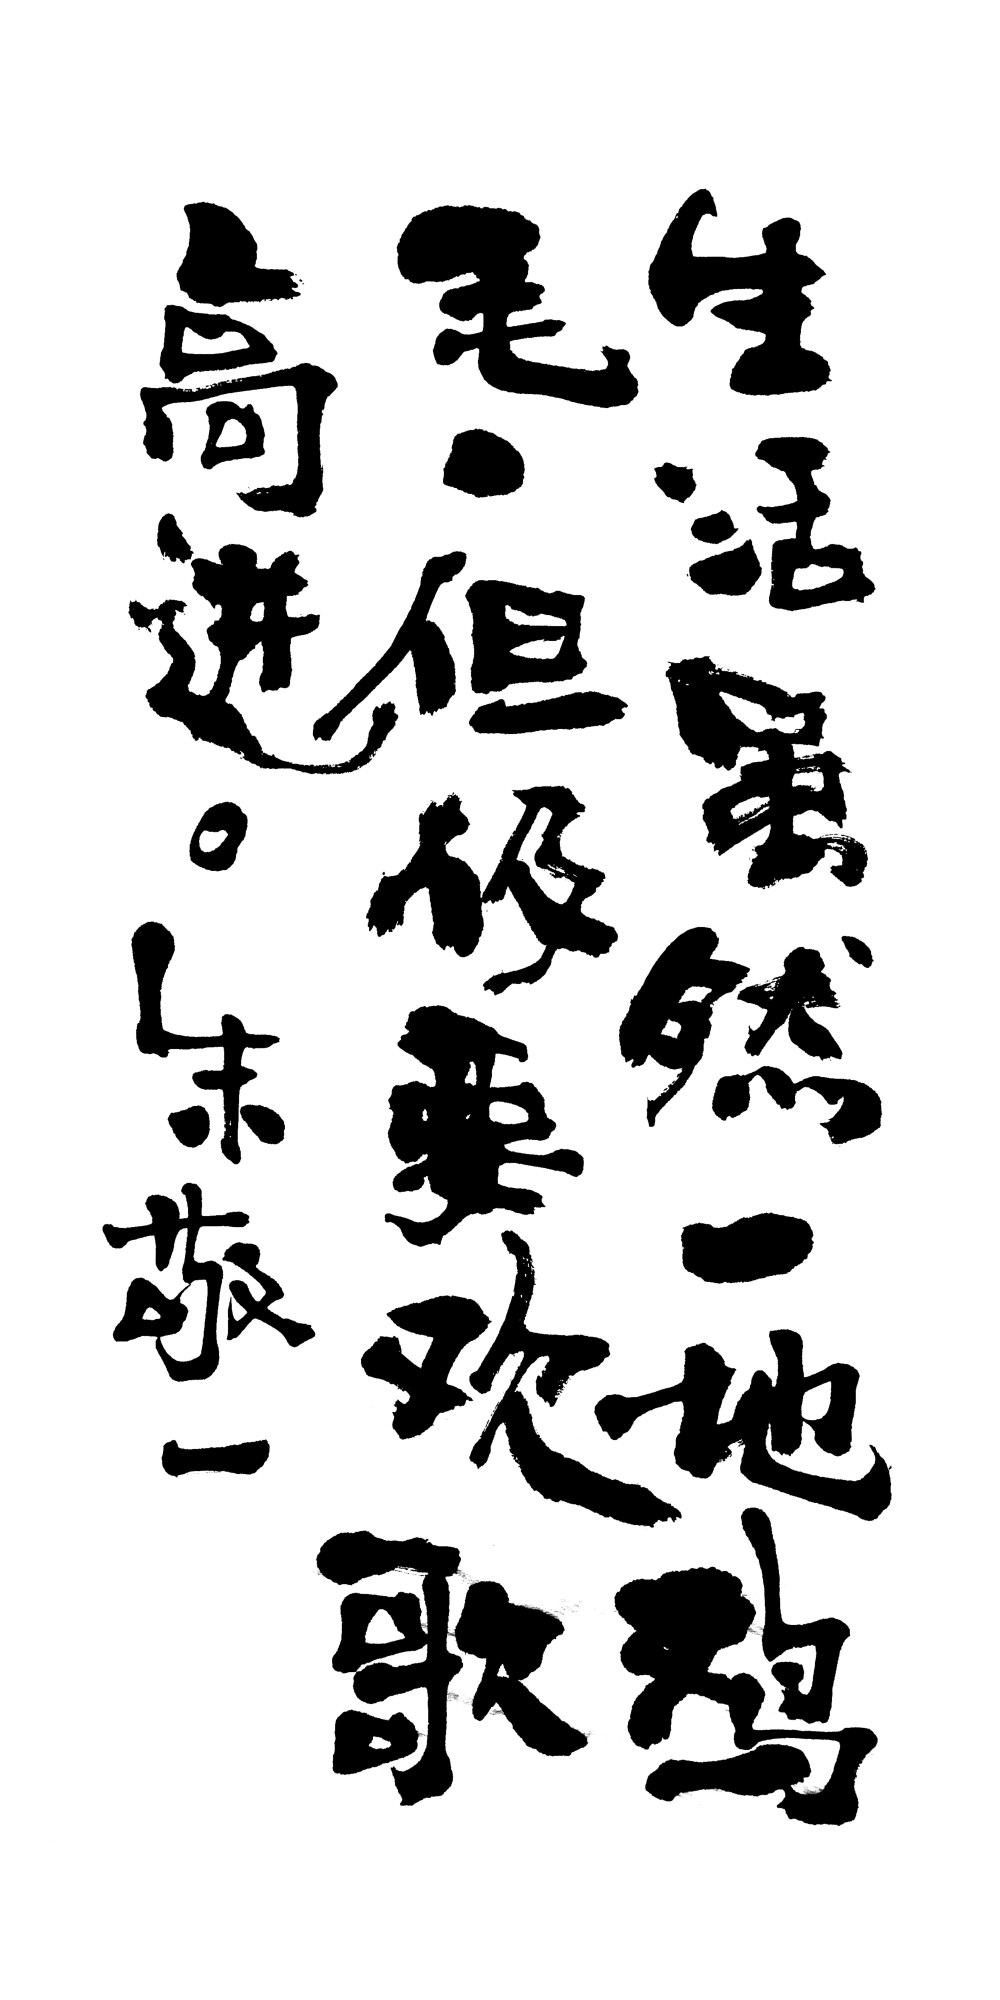 生活虽然一地鸡
毛，但仍要欢歌
高进。朱敬一